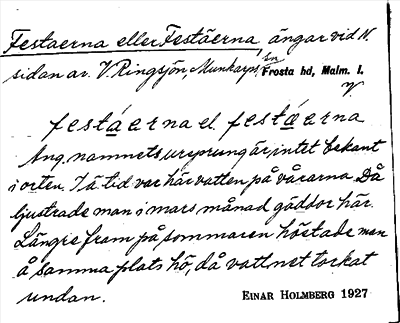 Festaerna eller Festäerna, ängar vid N.
sidan av V. Ringsjön, Munkarps sn
Frosta hd, Malm. l.
festaerna el. festäerna
Ang. namnets ursprung är intet bekant
i orten. I ä tid var här vatten på vårarna. Då
ljustrade man i mars månad gäddor här.
Längre fram på sommaren höstade man
å samma plats hö, då vattnet torkat
undan.
EINAR HOLMBERG 1927